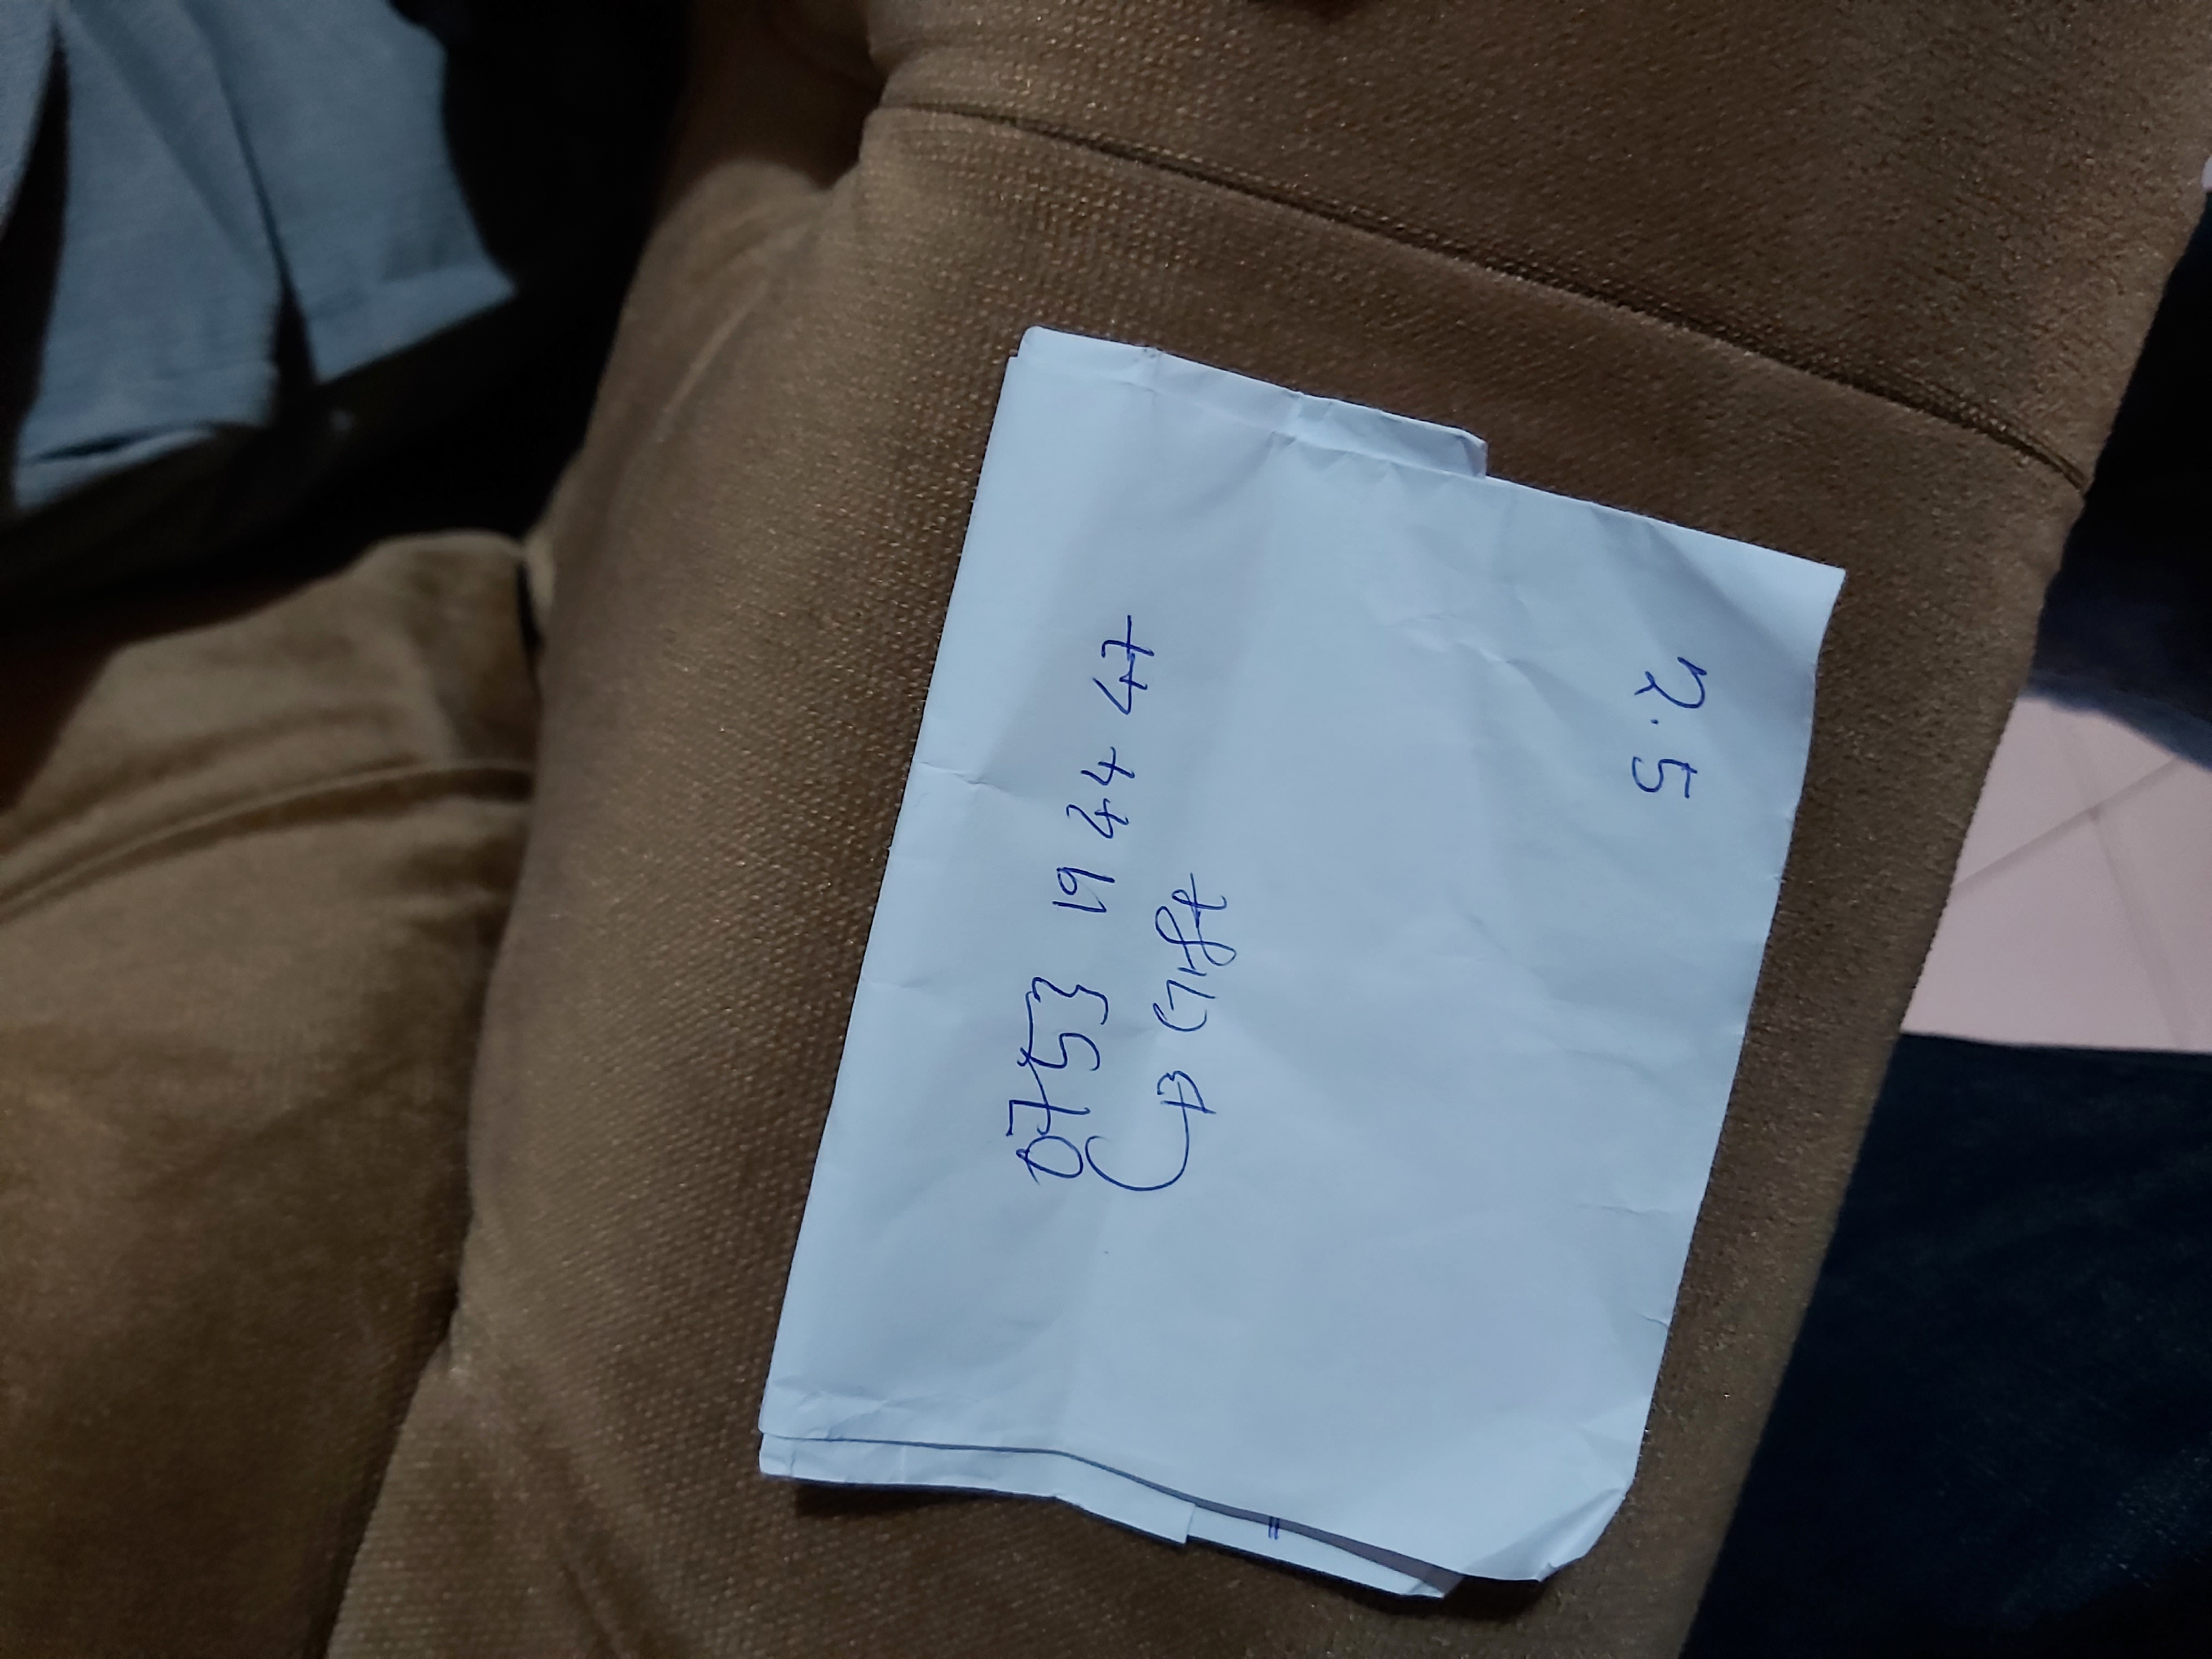 0753 19 44 47
Gift
2.5